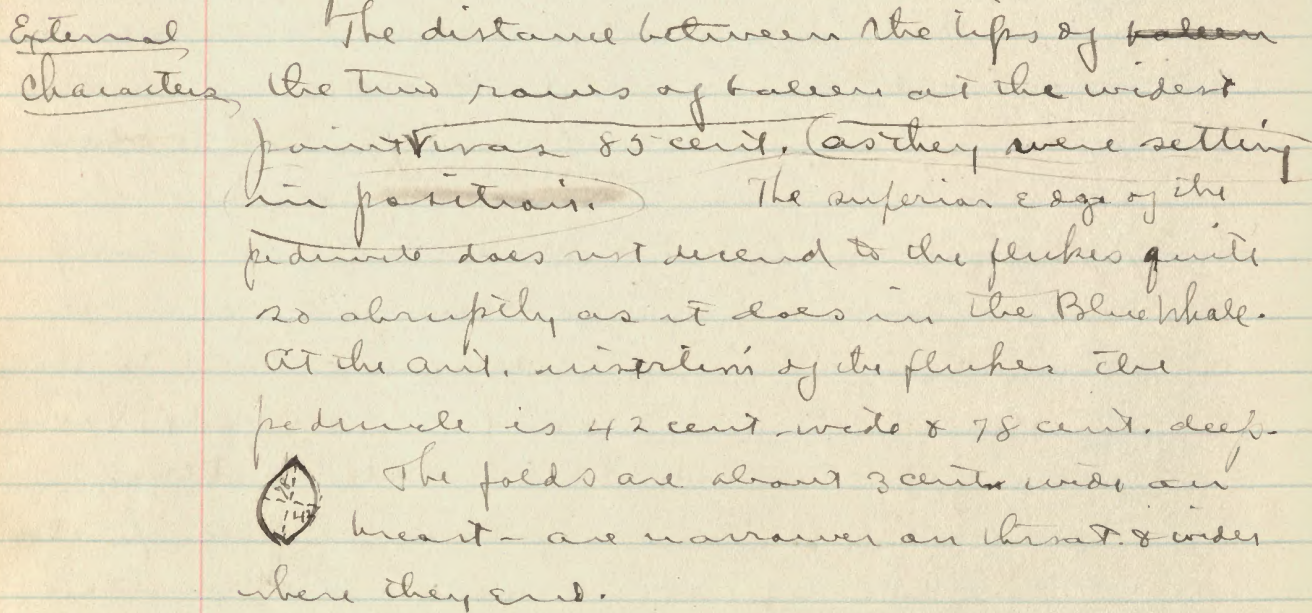 External
Characters,
The distance between the tips of baleen
the two rows of baleen at the widest
point was 85 cent. (as they were setting
in position.) The superior edge of the
peduncle does not decend to the flukes quite
so abruptly as it does in the Blue Whale.
At the ant. insertion of the flukes the
peduncle is 42 cent wide & 78 cent. deep.
The folds are about 3 cent wide on
42
breast - are narrower on throat. & wider
where they end.